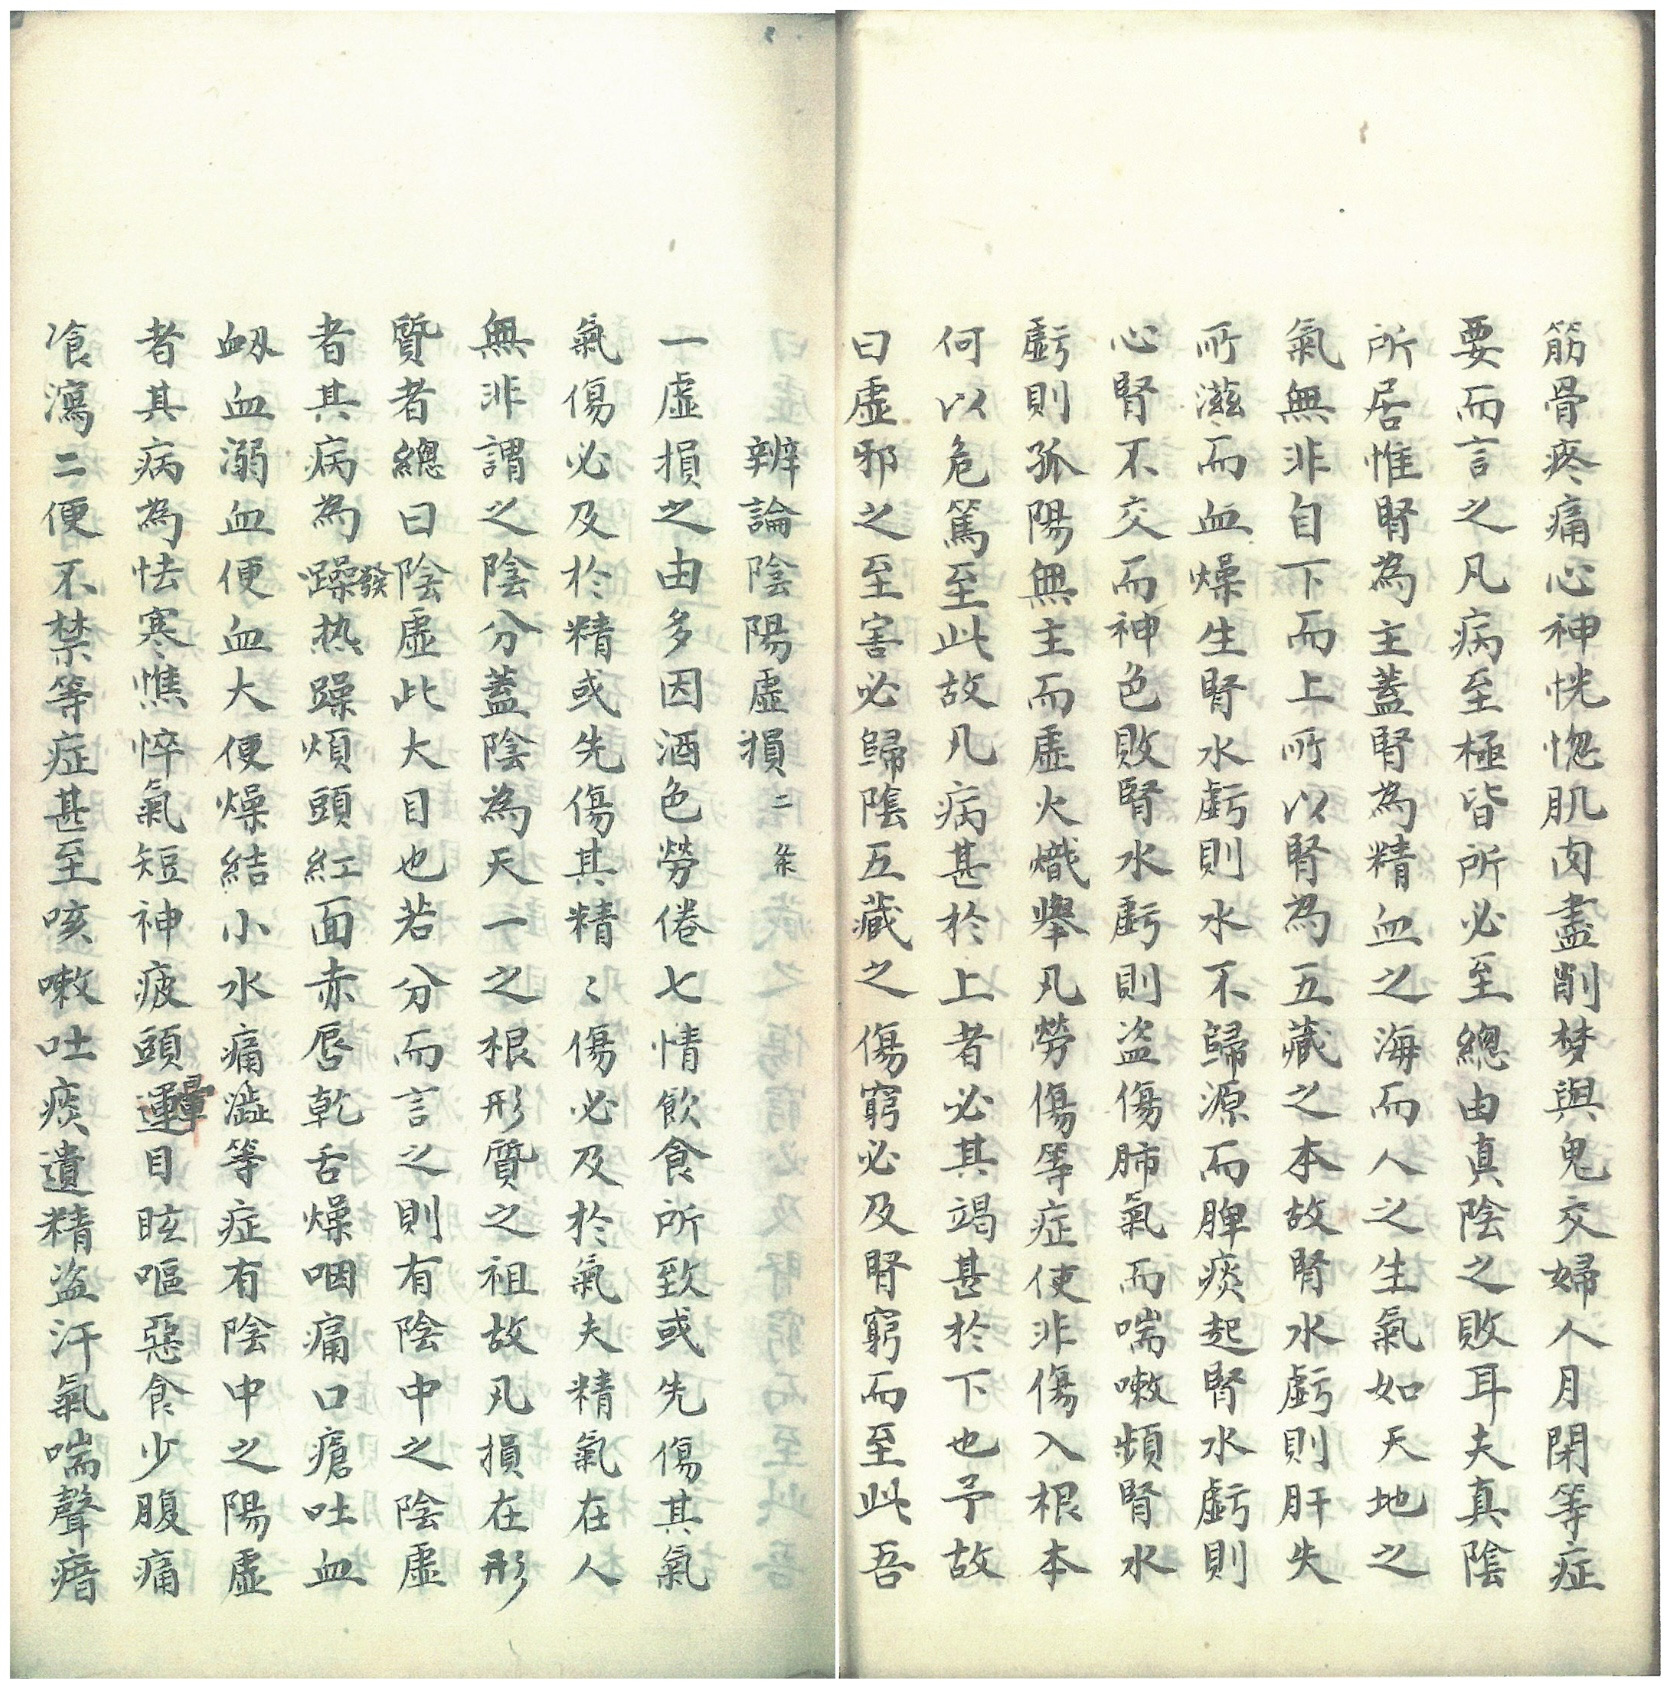 筋骨疼痛心神恍惚肌肉盡削梦與鬼交婦人月閉等症
要而言之凡病至極皆所必至總由真陰之敗耳夫真陰
所居惟腎為主蓋腎為精血之海而人之生氣如天地之
氣無非自下而上所以腎為五藏之本故腎水虧則肝失
所滋而血燥生腎水虧則水不歸源而脾痰起腎水虧則
心腎不交而神色敗腎水虧則盜傷肺氣而喘嗽頻腎水
虧則孤陽無主而虛火熾舉凡勞傷等症使非傷入根本
何以危篤至此故凡病甚於上者必其竭甚於下也予故
曰虛邪之至害必歸陰五藏之傷窮必及腎窮而至此吾
辨論陰陽虛損二条
一虛損之由多因酒色勞倦七情飲食所致或先傷其氣
氣傷必及於精或先傷其精〻傷必及於氣夫精氣在人
無非謂之陰分蓋陰為天一之根形質之祖故凡損在形
質者總曰陰虛此大目也若分而言之則有陰中之陰虛
者其病為發躁热躁煩頭紅面赤唇乾舌燥咽痛口瘡吐血
衂血溺血便血大便燥結小水痛澁等症有陰中之陽虛
者其病為怯寒憔悴氣短神疲頭運暈目眩嘔惡食少腹痛
飡瀉二便不禁等症甚至咳嗽吐痰遺精盜汗氣喘聲瘖